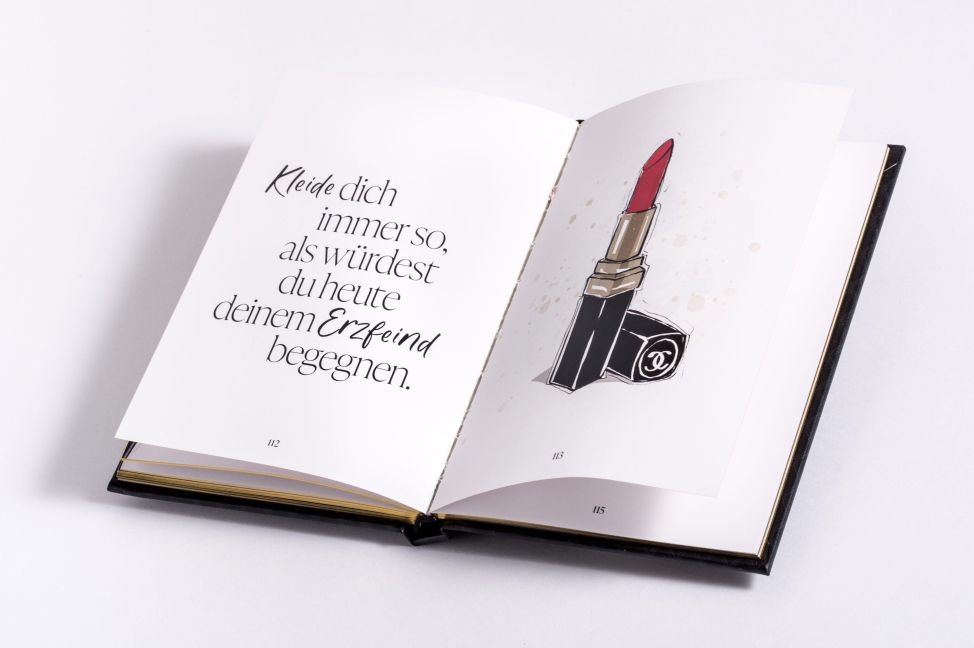 Kleide dich
immer so,
als würdest
du heute
deinem Erzfeind
begegnen.
112
113
115